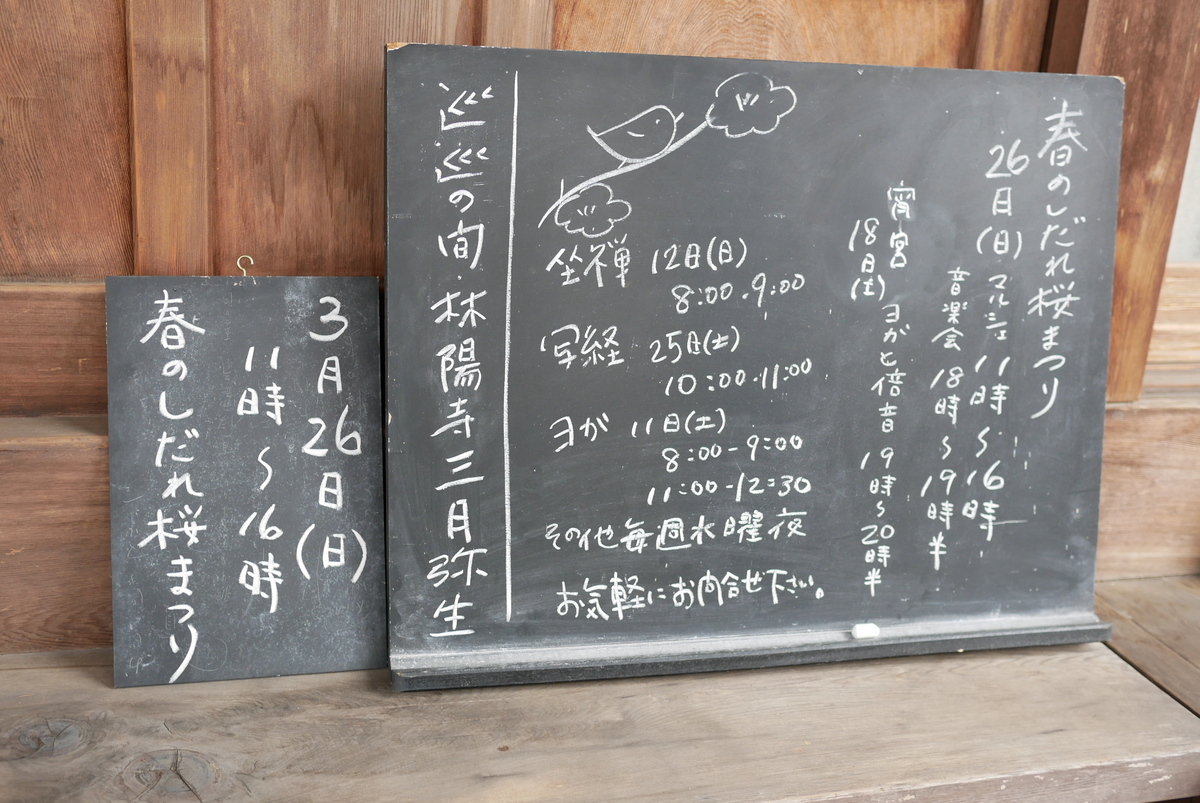 3月26日(日)
11時〜16時
春のしだれ桜まつり
春のしだれ桜まつり
26日(日)マルシェ 11時〜16時
音楽会 18時〜19時半
宵宮 ヨガと倍音 19時〜20時半
18日(土)
坐禅 12日(日)
8:00-9:00
写経 25日(土)
10:00-11:00
ヨガ 11日(土)
8:00-9:00
11:00-12:30
その他毎週水曜夜
お気軽にお問合せ下さい。
巡巡の間・林陽寺三月弥生